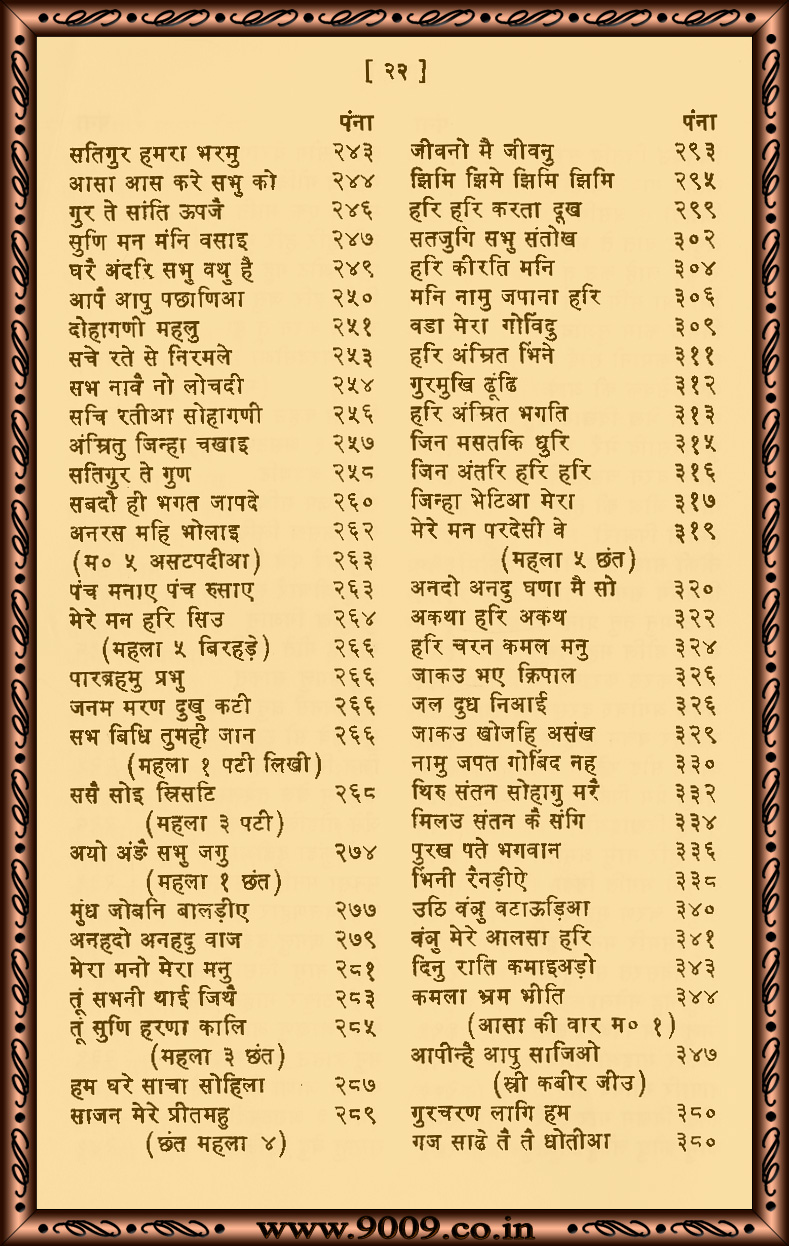 [ २२ ]
पंना
सतिगुर हमरा भरमु २४३
आसा आस करे सभु को २४४
गुर ते सांति ऊपजै २४६
सुणि मन मंनि वसाइ २४७
घरै अंदरि सभु वथु है २४९
आपै आपु पछाणिआ २५०
दोहागणी महलु २५१
सचे रते से निरमले २५३
सभ नावै नो लोचदी २५४
सचि रतीआ सोहागणी २५६
अंम्रितु जिन्हा चखाइ २५७
सतिगुर ते गुण २५८
सबदौ ही भगत जापदे २६०
अनरस महि भोलाइ २६२
(म० ५ असटपदीआ) २६३
पंच मनाए पंच रुसाए २६३
मेरे मन हरि सिउ २६४
(महला ५ बिरहड़े) २६६
पारब्रहमु प्रभु २६६
जनम मरण दुखु कटी २६६
सभ बिधि तुमही जान २६६
(महला १ पटी लिखी)
ससै सोइ स्रिसटि २६८
(महला ३ पटी)
अयो अंङै सभु जगु २७४
(महला १ छंत)
मुंध जोबनि बालड़ीए २७७
अनहदो अनहदु वाज २७९
मेरा मनो मेरा मनु २८१
तूं सभनी थाई जिथै २८३
तूं सुणि हरणा कालि २८५
(महला ३ छंत)
हम घरे साचा सोहिला २८७
साजन मेरे प्रीतमहु २८९
(छंत महला ४)
पंना
जीवनो मै जीवनु २९३
झिमि झिमे झिमि झिमि २९५
हरि हरि करता दूख २९९
सतजुगि सभु संतोख ३०२
हरि कीरति मनि ३०४
मनि नामु जपाना हरि ३०६
वडा मेरा गोविंदु ३०९
हरि अंम्रित भिंने ३११
गुरमुखि ढूंढि ३१२
हरि अंम्रित भगति ३१३
जिन मसतकि धुरि ३१५
जिन अंतरि हरि हरि ३१६
जिन्हा भेटिआ मेरा ३१७
मेरे मन परदेसी वे ३१९
(महला ५ छंत)
अनदो अनदु घणा मै सो ३२०
अकथा हरि अकथ ३२२
हरि चरन कमल मनु ३२४
जाकउ भए क्रिपाल ३२६
जल दुध निआई ३२६
जाकउ खोजहि असंख ३२९
नामु जपत गोबिंद नह ३३०
थिरु संतन सोहागु मरै ३३२
मिलउ संतन कै संगि ३३४
पुरख पते भगवान ३३६
भिंनी रैनड़ीऐ ३३८
उठि वंञु वटाऊड़िआ ३४०
वंञु मेरे आलसा हरि ३४१
दिनु राति कमाइअड़ो ३४३
कमला भ्रम भीति ३४४
(आसा की वार म० १)
आपीन्है आपु साजिओ ३४७
(स्री कबीर जीउ)
गुरचरण लागि हम ३८०
गज साढे तै तै धोतीआ ३८०
www.9009.co.in